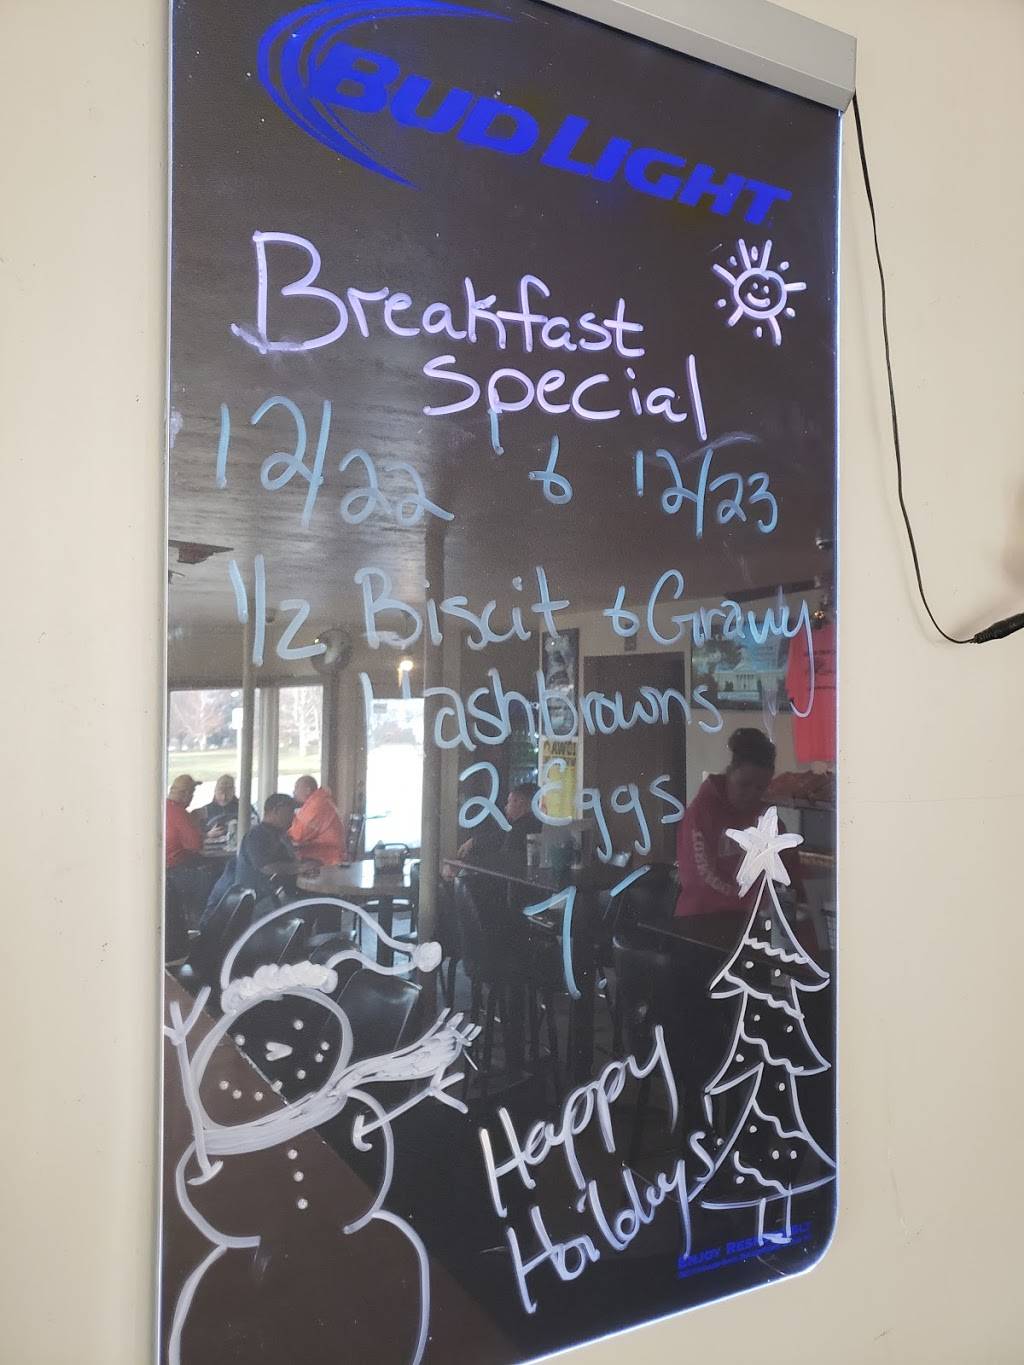 BUD LIGHT
Breakfast
Special
12/22 to 12/23
1/2 Biscit & Gravy
Hashbrowns
2 Eggs
7.
Happy
Hoildays!
ENJOY RESPONSIBLY